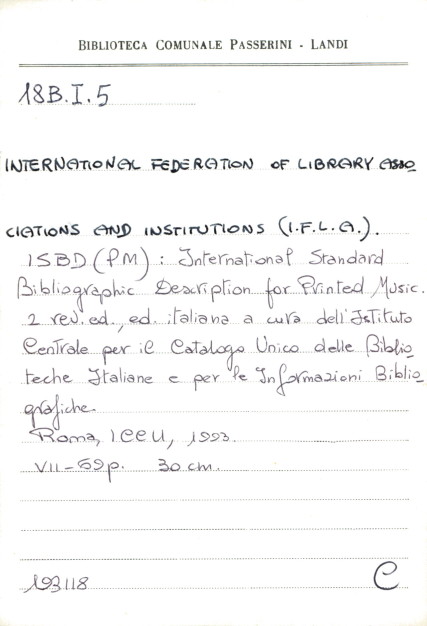 BIBLIOTECA COMUNALE PASSERINI - LANDI
18B.I.5
INTERNATIONAL FEDERATION OF LIBRARY ASSO
CIATIONS AND INSTITUTIONS (I.F.L.A.).
ISBD (PM) : International Standard
Bibliographic Description for Printed Music.
2 rev. ed., ed. italiana a cura dell'Istituto
Centrale per il Catalogo Unico delle Biblio
teche Italiane e per le Informazioni Biblio
grafiche.
Roma, ICCU, 1993.
VII-69p. 30 cm.
193118 C